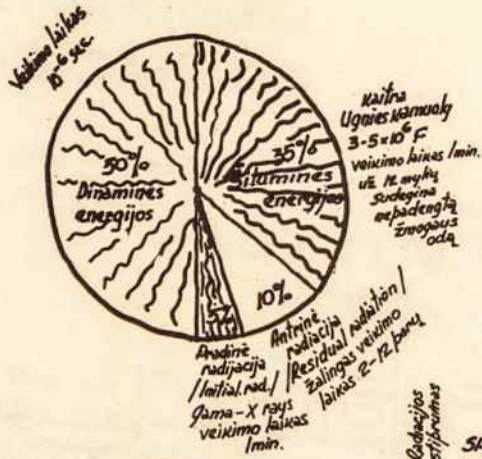 Veikimo laikas
10⁻⁶ sec.
50%
Dinaminės
energijos
35%
Šiluminės
energijos
Kaitra
Ugnies kamuolų
3-5x10⁶ F
veikimo laikas 1min.
už 12 mylių
sudegina
nepadengtą
žmogaus
odą
5%
10%
Pradinė
radijacija
/Initial. rad./
gama-X rays
veikimo laikas
1min.
Antrinė
radiacija
/Residual radiation/
žalingas veikimo
laikas 2-12 parų
Radiacijos
stiprumas